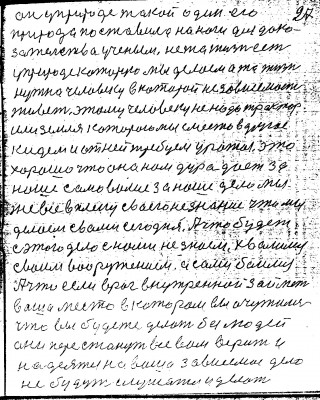 он у природе такой один его 27
природа поставила на ноги для дока-
зательства ученым, не та жизнь ест
у природе которую мы делаем а та жизнь
нужна человеку в которой независимость
живет, этому человеку не надо трактор
или земля которою мы с места в другое
кидаем и от ней требуем урожая, это
хорошо что она нам дура дает за
наше самоволие за наше дело мы
же все в
делаем с вами сегодня, А что будет
с этого дело с нами не знаем, хвалимся
своим вооружением, а сами боимся
А что если враг внутренной займет
ваша место в котором вы очутились
что вы будете делать бы людей
они перестанут все вам верит и
надеятся на ваша зависимое дело
не будут слушатся и делат